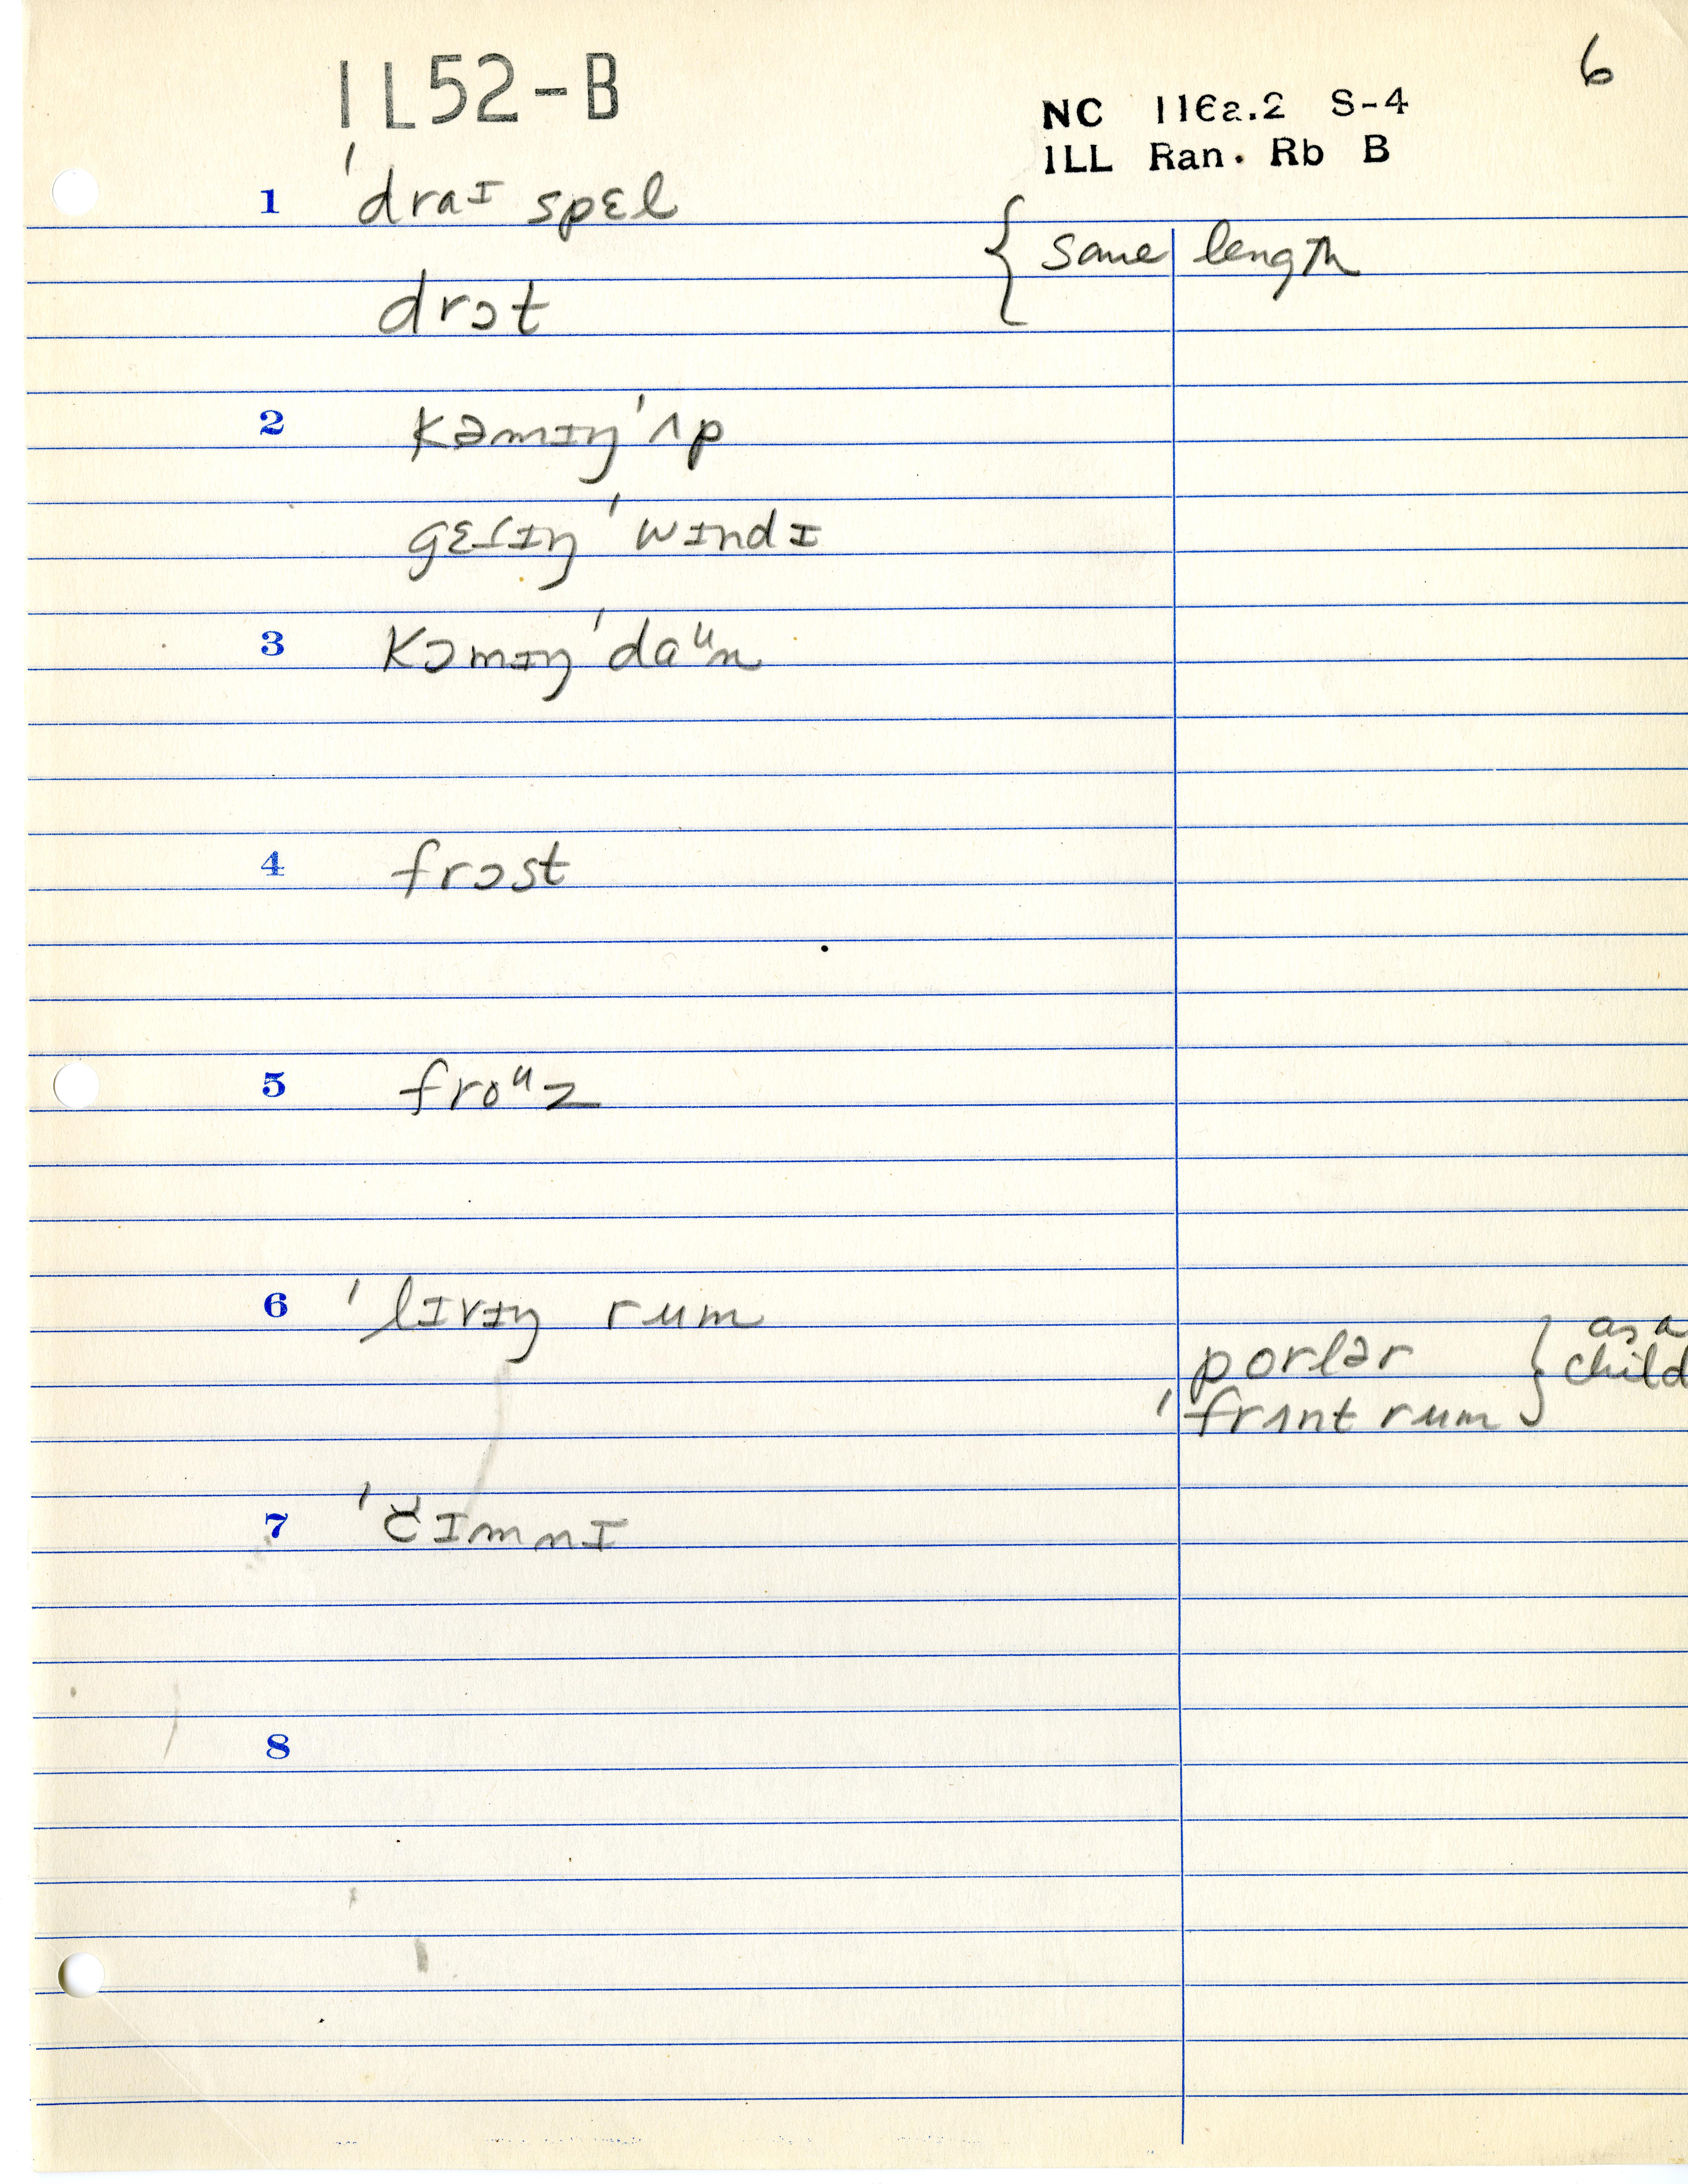 6
IL52-B
NC 116a.2 S-4
ILL Ran. Rb B
1 ˈdraɪ spɛl
{ same length
drɔt
2 kəmɪŋ ˈʌp
gɛɾɪŋ ˈwɪndɪ
3 kəmɪŋ ˈdaᵘn
4 frɔst
5 froᵘz
6 ˈlɪvɪŋ rum
porlər } as a child
ˈfrʌnt rum
7 ˈčɪmnɪ
8